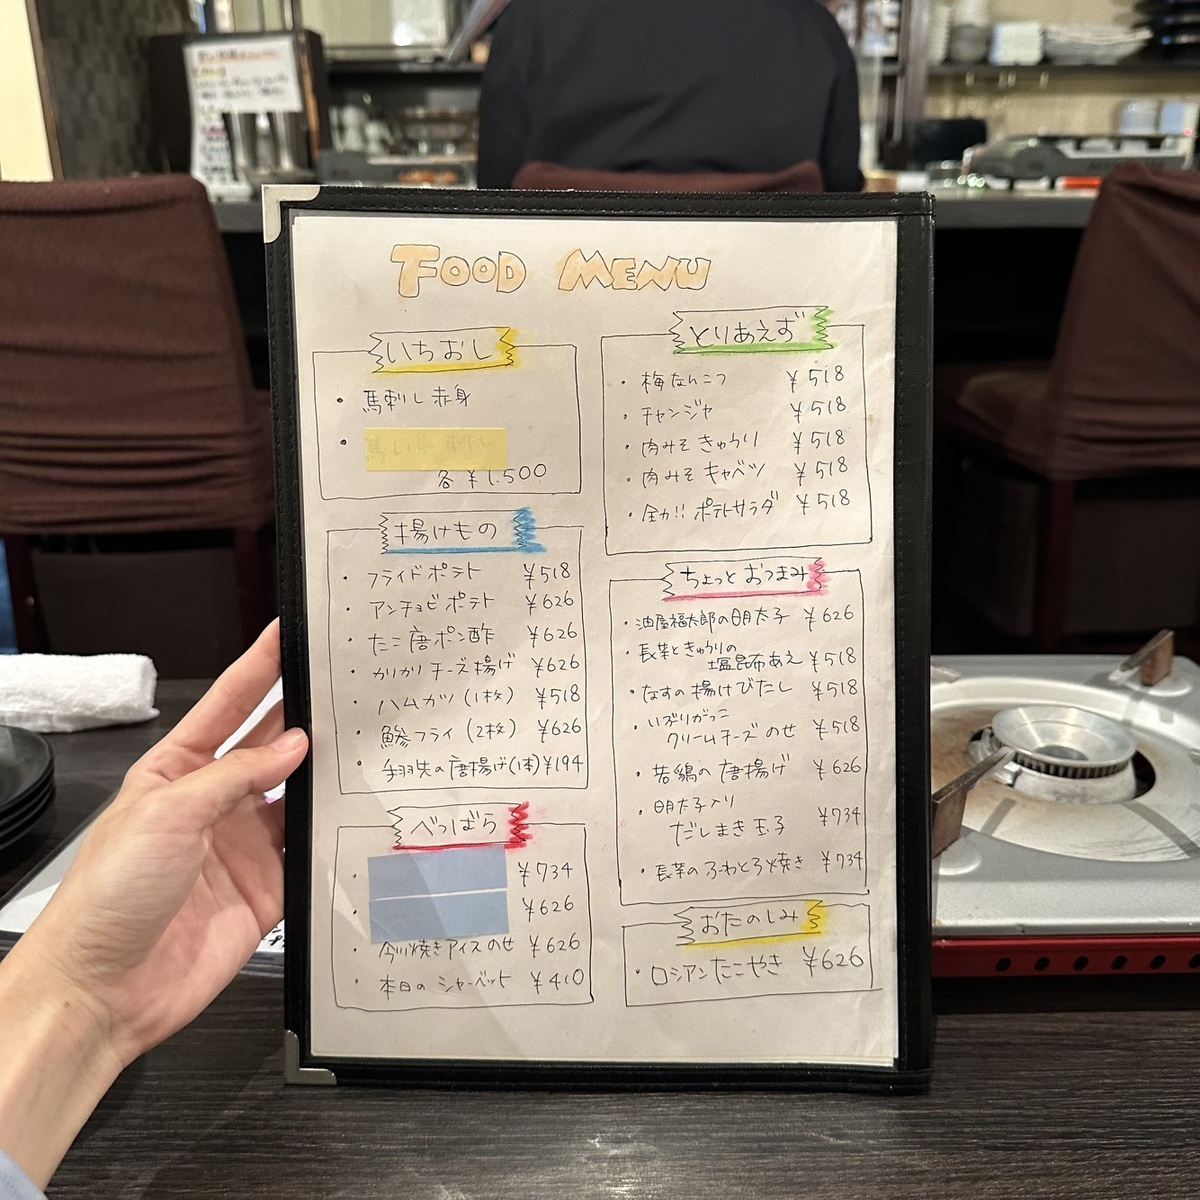 FOOD MENU
いちおし
・馬刺し赤身
・
各 ¥1,500
揚げもの
・フライドポテト ¥518
・アンチョビポテト ¥626
・たこ唐ポン酢 ¥626
・カリカリチーズ揚げ ¥626
・ハムカツ(1枚) ¥518
・鯵フライ(2枚) ¥626
・手羽先の唐揚げ(1本) ¥194
べつばら
・ ¥734
・ ¥626
・今川焼きアイスのせ ¥626
・本日のシャーベット ¥410
とりあえず
・梅なんこつ ¥518
・チャンジャ ¥518
・肉みそきゅうり ¥518
・肉みそキャベツ ¥518
・全力!!ポテトサラダ ¥518
ちょっとおつまみ
・油屋福太郎の明太子 ¥626
・長芋ときゅうりの
塩昆布あえ ¥518
・なすの揚げびたし ¥518
・いぶりがっこ
クリームチーズのせ ¥518
・若鶏の唐揚げ ¥626
・明太子入り
だしまき玉子 ¥734
・長芋のふわとろ焼き ¥734
おたのしみ
・ロシアンたこやき ¥626